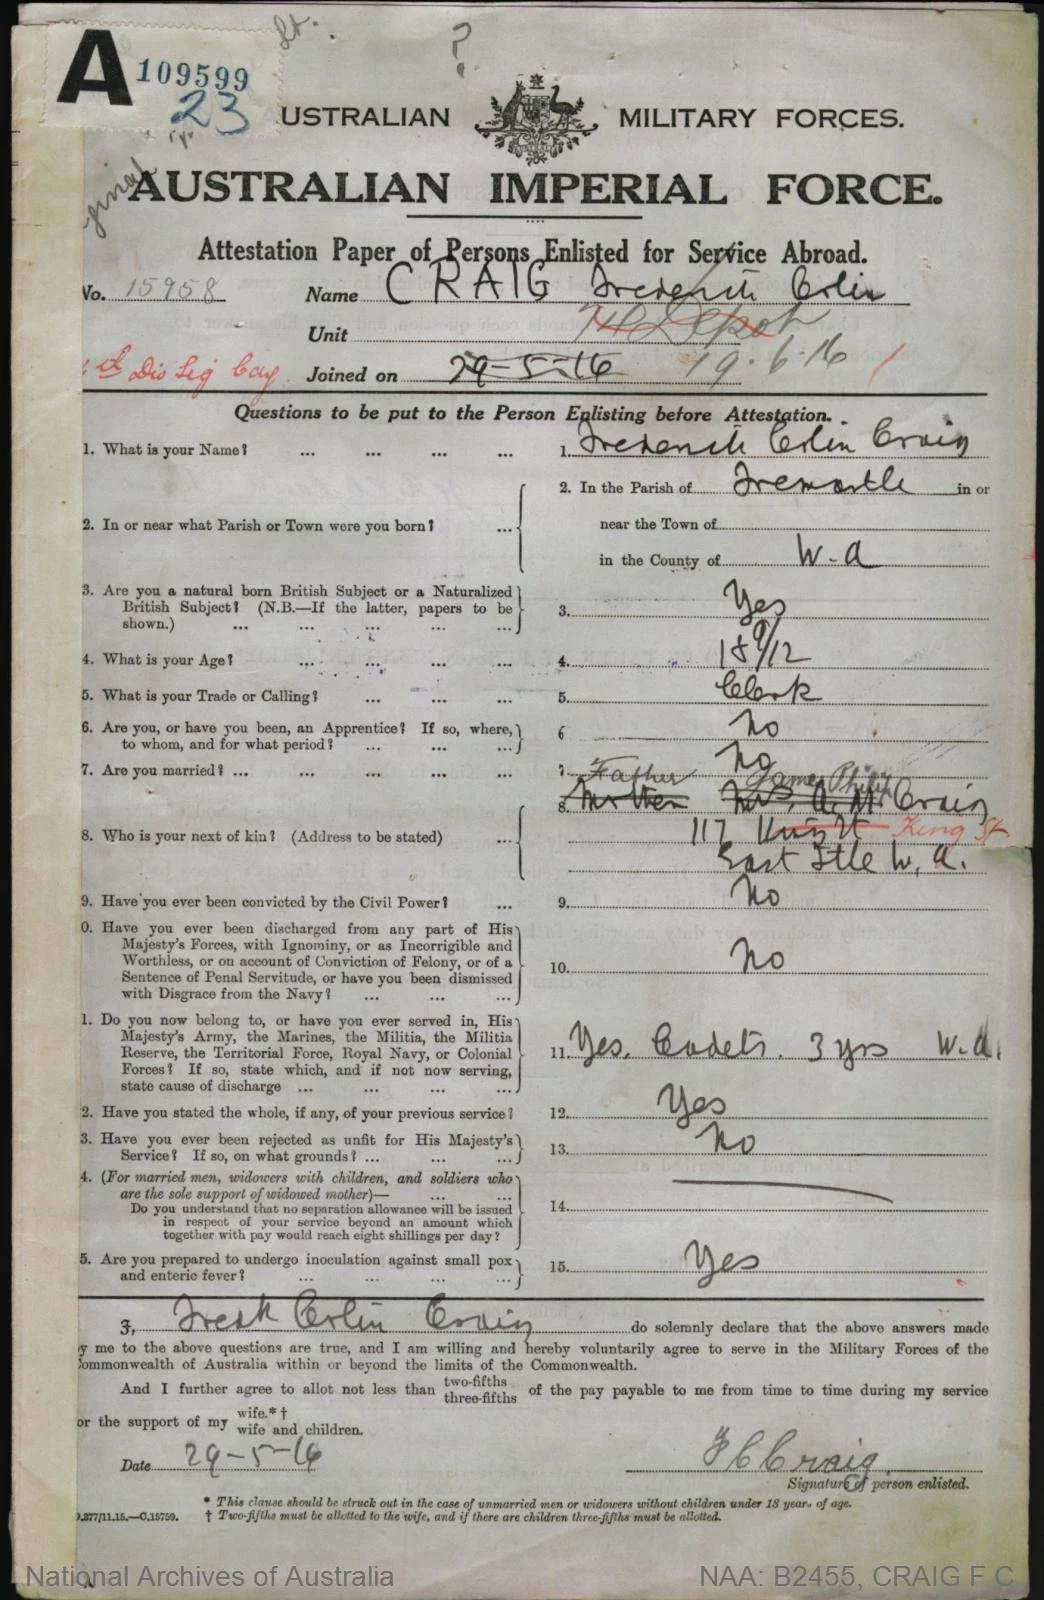 A 109599
23
USTRALIAN MILITARY FORCES.
AUSTRALIAN IMPERIAL FORCE.
Attestation Paper of Persons Enlisted for Service Abroad.
No. 15958 Name CRAIG Frederick Colin
Unit 74 Depot
Div Sig Coy Joined on 29-5-16 19.6.16
Questions to be put to the Person Enlisting before Attestation.
1. What is your Name? ... ... ... ... 1. Frederick Colin Craig
2. In or near what Parish or Town were you born? ... 2. In the Parish of Fremantle in or
near the Town of
in the County of W.A
3. Are you a natural born British Subject or a Naturalized
British Subject? (N.B.—If the latter, papers to be
shown.) ... ... ... ... ... 3. Yes
4. What is your Age? ... ... ... 4. 18 9/12
5. What is your Trade or Calling? ... ... ... 5. Clerk
6. Are you, or have you been, an Apprentice? If so, where,
to whom, and for what period? ... ... ... 6 No
7. Are you married? ... ... ... ... ... 7. No
Father James Philip
8. Who is your next of kin? (Address to be stated) ... 8. Mother Mrs. A. M. Craig
117 King St
East Ftle W.A.
9. Have you ever been convicted by the Civil Power? ... 9. No
0. Have you ever been discharged from any part of His
Majesty's Forces, with Ignominy, or as Incorrigible and
Worthless, or on account of Conviction of Felony, or of a
Sentence of Penal Servitude, or have you been dismissed
with Disgrace from the Navy? ... ... ... 10. No
1. Do you now belong to, or have you ever served in, His
Majesty's Army, the Marines, the Militia, the Militia
Reserve, the Territorial Force, Royal Navy, or Colonial
Forces? If so, state which, and if not now serving,
state cause of discharge ... ... ... ... 11. Yes. Cadets. 3 yrs W.A.
2. Have you stated the whole, if any, of your previous service? 12. Yes
3. Have you ever been rejected as unfit for His Majesty's
Service? If so, on what grounds? ... ... ... 13. No
4. (For married men, widowers with children, and soldiers who
are the sole support of widowed mother)— ... ...
Do you understand that no separation allowance will be issued
in respect of your service beyond an amount which
together with pay would reach eight shillings per day? 14.
5. Are you prepared to undergo inoculation against small pox
and enteric fever? ... ... ... ... 15. Yes
I, Fredk Colin Craig do solemnly declare that the above answers made
y me to the above questions are true, and I am willing and hereby voluntarily agree to serve in the Military Forces of the
Commonwealth of Australia within or beyond the limits of the Commonwealth.
And I further agree to allot not less than two-fifths three-fifths of the pay payable to me from time to time during my service
or the support of my wife.* † wife and children.
Date 29-5-16 F C Craig
Signature of person enlisted.
* This clause should be struck out in the case of unmarried men or widowers without children under 18 years of age.
D.377/11.15.—C.15759. † Two-fifths must be allotted to the wife, and if there are children three-fifths must be allotted.
National Archives of Australia NAA: B2455, CRAIG F C